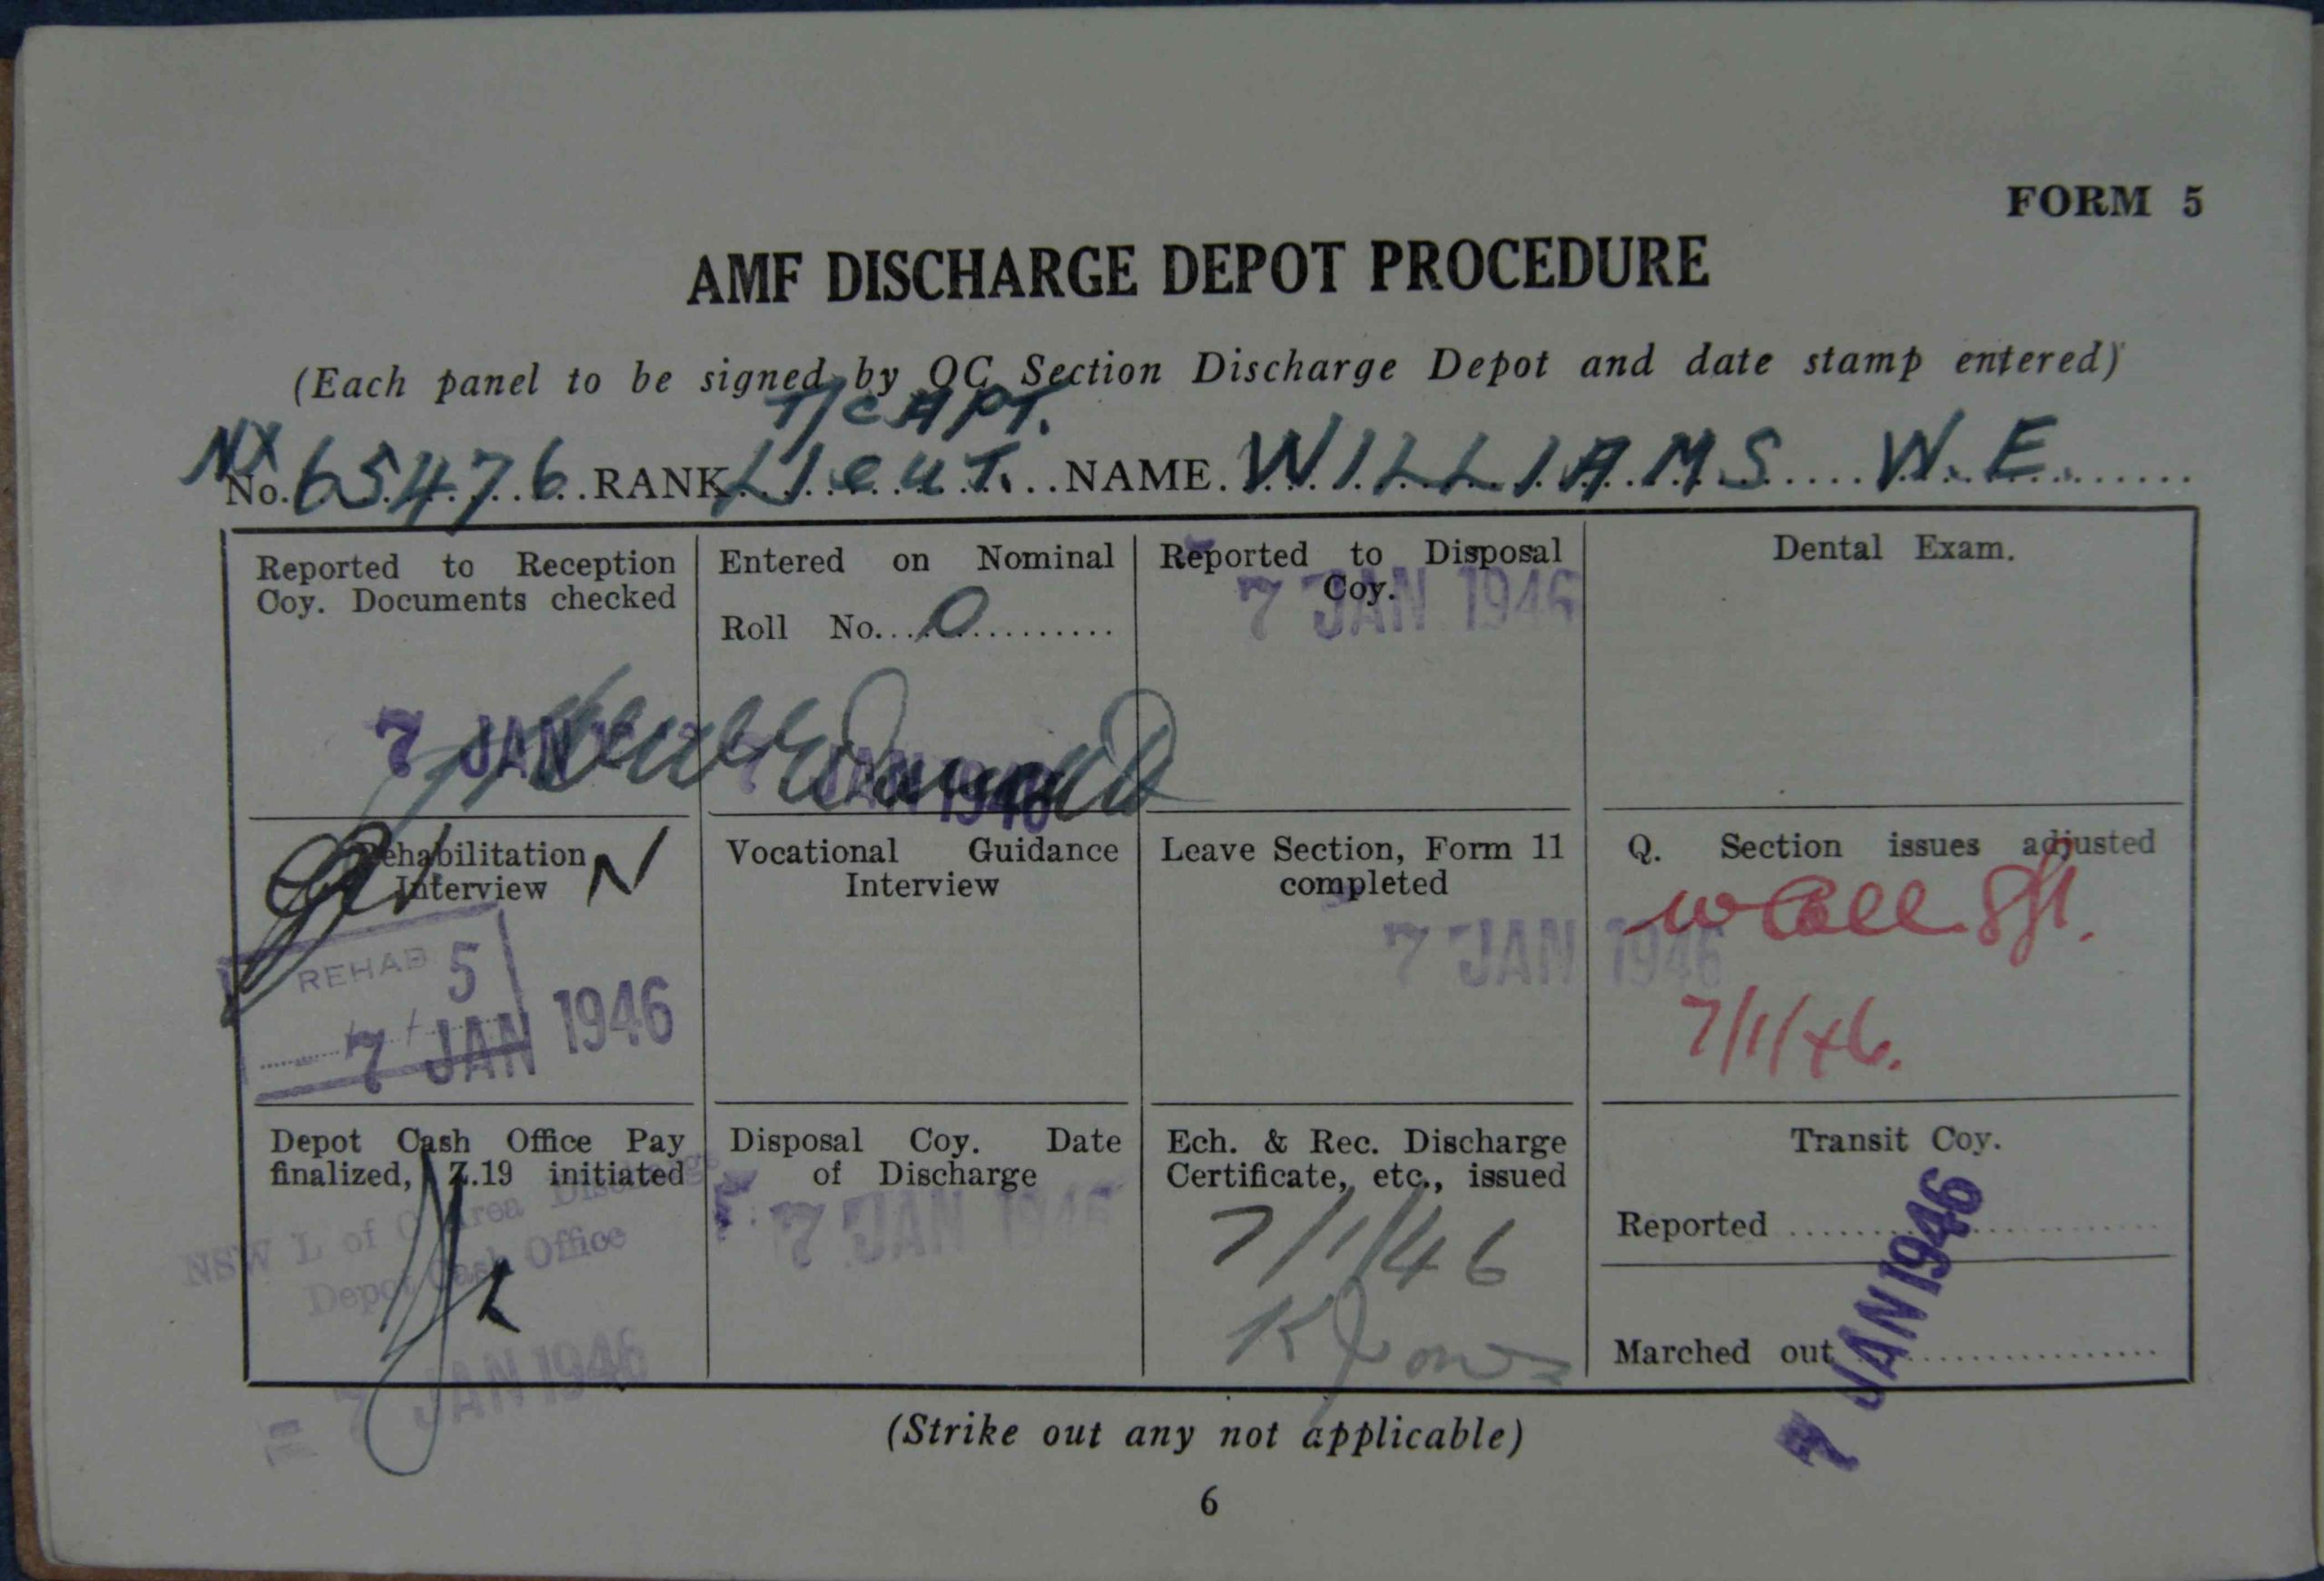 FORM 5
AMF DISCHARGE DEPOT PROCEDURE
(Each panel to be signed by OC Section Discharge Depot and date stamp entered)
T/CAPT.
NX
No. 65476 RANK Lieut. NAME. WILLIAMS W.E.
Reported to Reception
Coy. Documents checked
7 JAN
Entered on Nominal
Roll No. 0
7 JAN 1946
Reported to Disposal
Coy.
7 JAN 1946
Dental Exam.
Rehabilitation
Interview N
REHAB 5
7 JAN 1946
Vocational Guidance
Interview
Leave Section, Form 11
completed
7 JAN 1946
Q. Section issues adjusted
7/1/46.
Depot Cash Office Pay
finalized, Z.19 initiated
NSW L of C Area Discharge
Depot Cash Office
7 JAN 1946
Disposal Coy. Date
of Discharge
7 JAN 1946
Ech. & Rec. Discharge
Certificate, etc., issued
7/1/46
K Jones
Transit Coy.
Reported
Marched out
7 JAN 1946
(Strike out any not applicable)
6